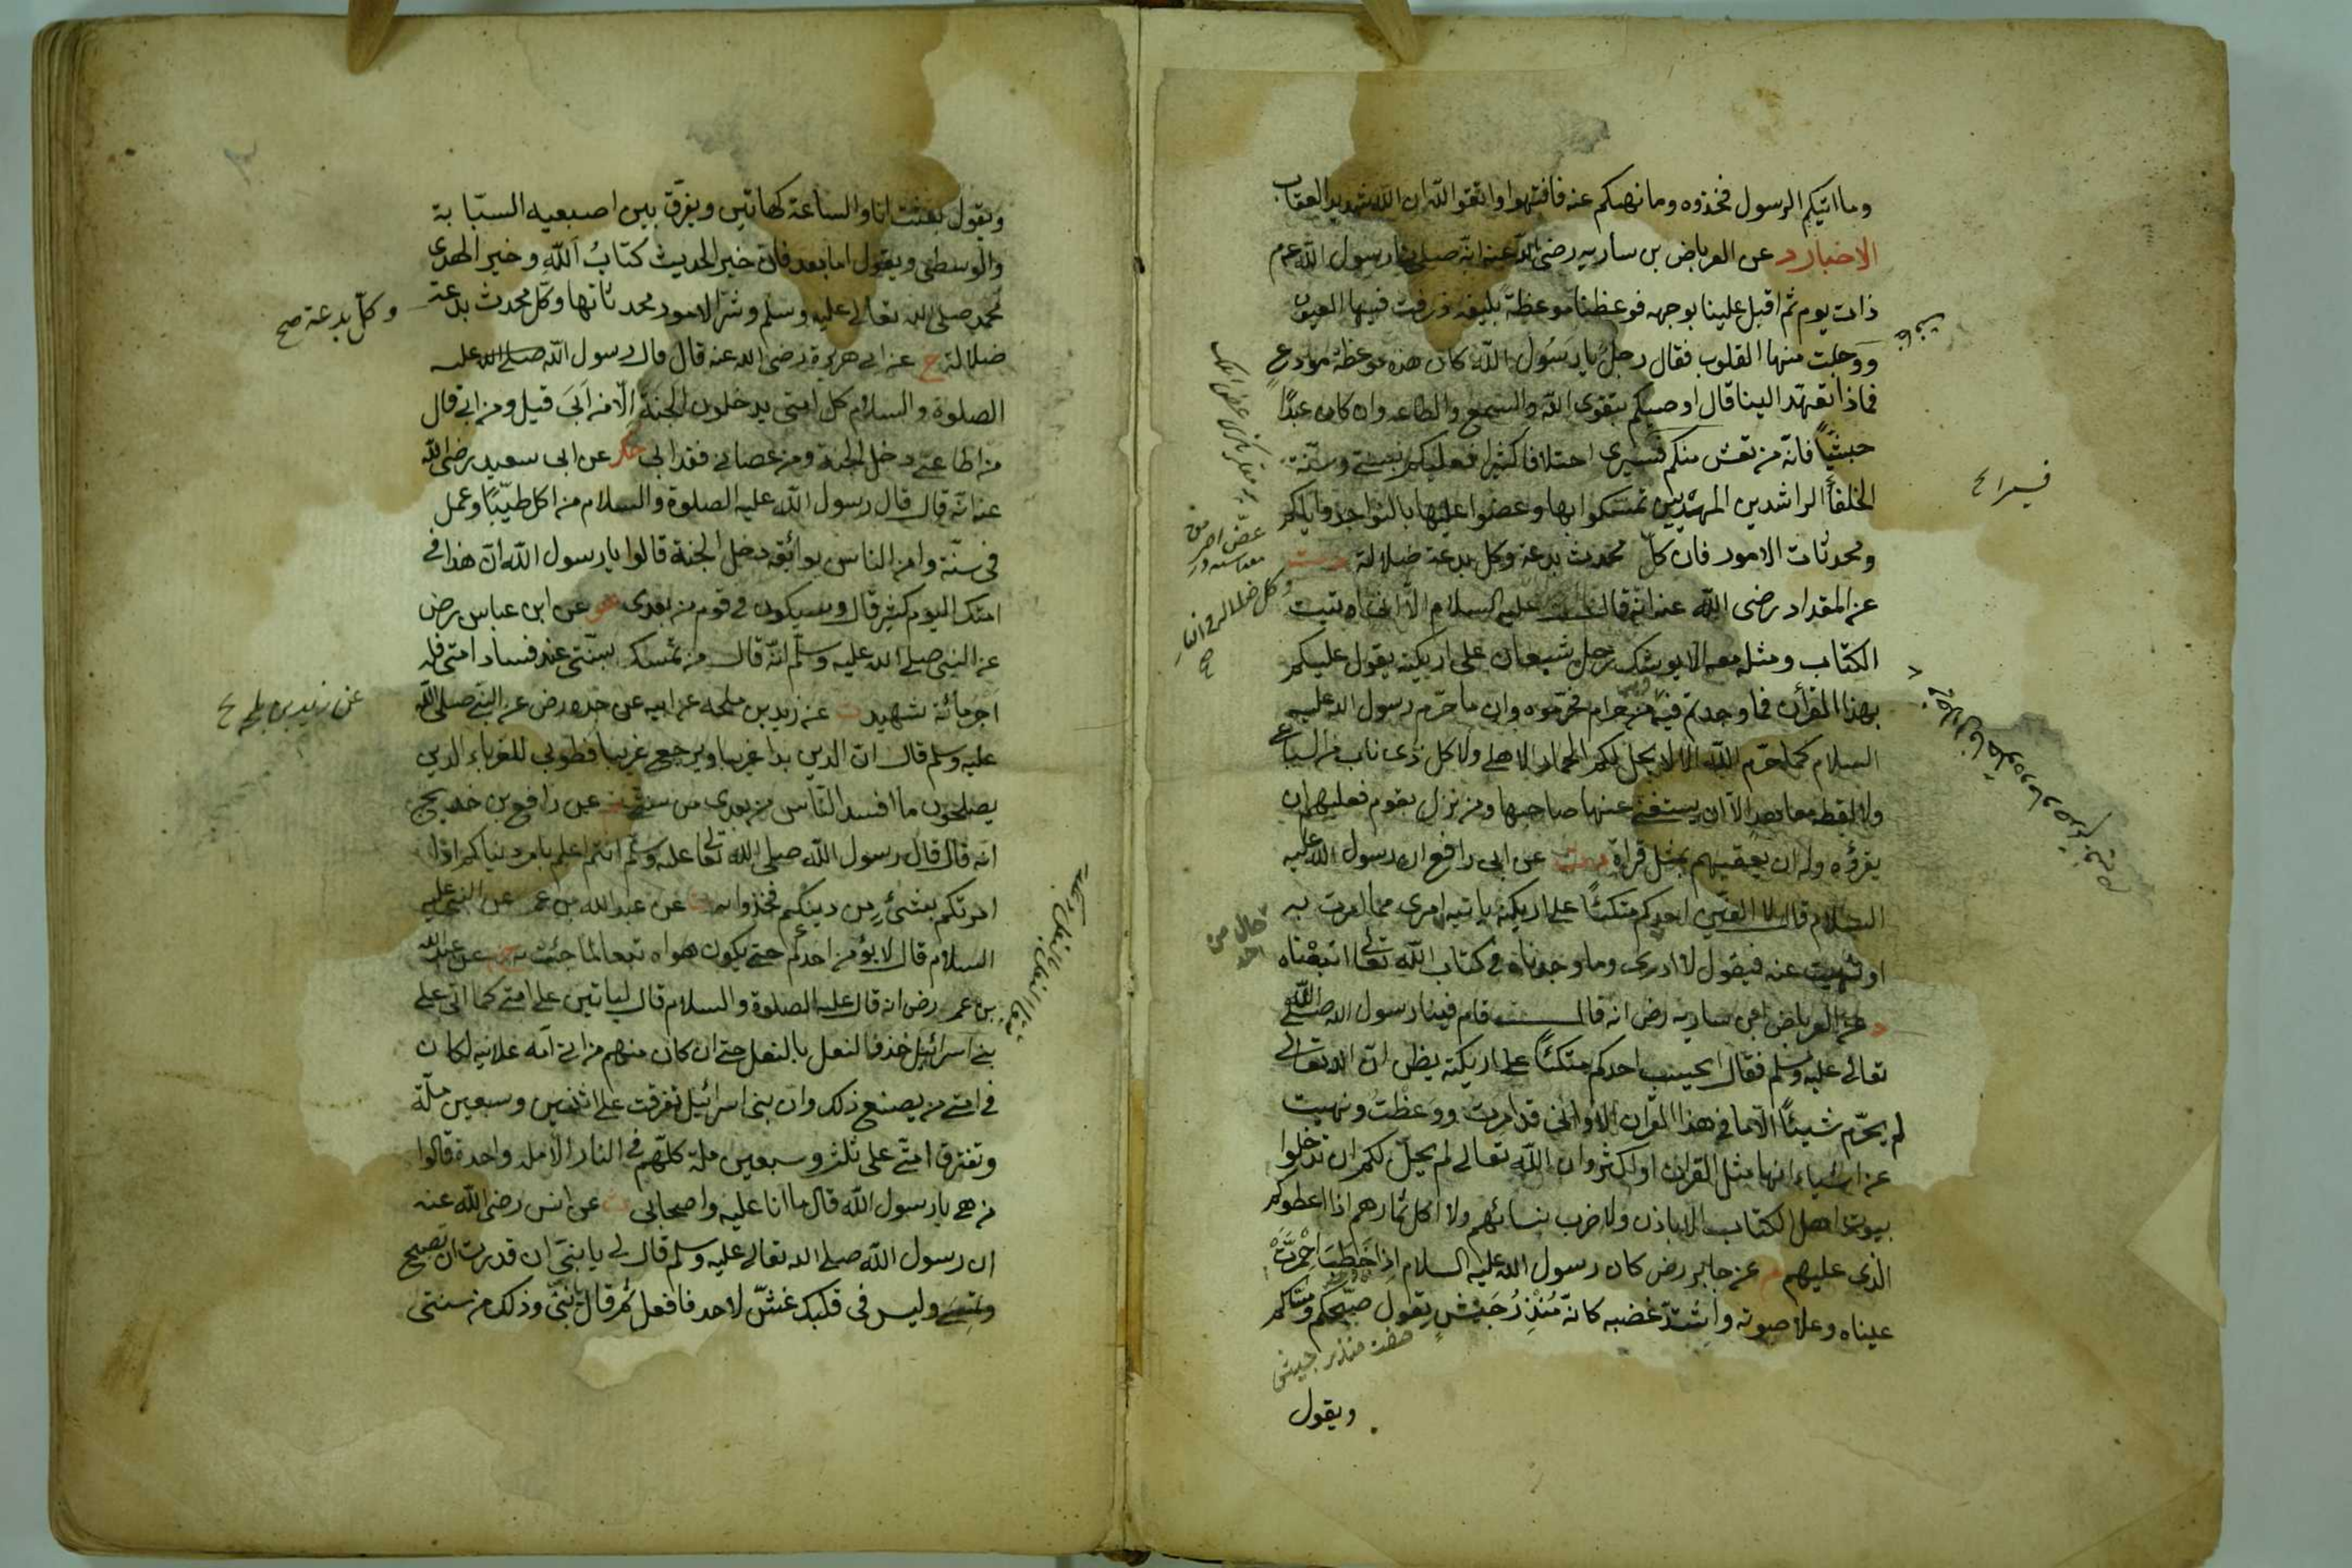 وما اتيكم الرسول فخذوه وما نهيكم عنه فانتهوا واتقوا الله ان الله شديد العقاب
الاخبار د عن العرباض بن سارية رضى الله عنه انه صلى بنا رسول الله عم
ذات يوم ثم اقبل علينا بوجهه فوعظنا موعظة بليغة ذرفت فيها العيون
ووجلت منها القلوب فقال رجل يا رسول الله كان هذه موعظة مودع
فماذا تعهد الينا قال اوصيكم بتقوى الله والسمع والطاعة وان كان عبدا
حبشيا فانه من تعش منكم فسيرى اختلافا كثيرا فعليكم بسنتى وسنة
الخلفأ الراشدين المهديين تمسكوا بها وعضوا عليها بالنواجذ واياكم
ومحدثات الامور فان كل محدث بدعة وكل بدعة ضلالة
وكل ضلالة فى النار صح
عن المقداد رضى الله عنه انه قال عليه السلام الا انى اوتيت
الكتاب ومثله معه الا يوشك رجل شبعان على اريكته يقول عليكم
بهذا القرأن فما وجدتم فيه من حرام فحرموه وان ما حرم رسول الله عليه
السلام كما حرم الله الا لا يحل لكم الحمار الاهلى ولا كل ذى ناب من السباع
ولا لقطة معاهد الا ان يستغنى عنها صاحبها ومن نزل بقوم فعليهم ان
يقرؤه وله ان يعقبهم بمثل قراه عن ابى رافع ان رسول الله عليه
السلام قال لا الفين احدكم متكئا على اريكته ياتيه امرى مما امرت به
او نهيت عنه فيقول لا ادرى وما وجدناه فى كتاب الله تعالى اتبعناه
د عن العرباض ابن سارية رض انه قال قام فينا رسول الله صلى الله
تعالى عليه وسلم فقال ايحسب احدكم متكئا على اريكته يظن ان الله تعالى
لم يحرم شيئا الا ما فى هذا القران الا وانى قد امرت ووعظت ونهيت
عن اشياء انها مثل القران او اكثر وان الله تعالى لم يحل لكم ان تدخلوا
بيوت اهل الكتاب الا باذن ولا ضرب نسائهم ولا اكل ثمارهم اذا اعطوكم
الذى عليهم م عن جابر رض كان رسول الله عليه السلام اذا خطب احمرت
عيناه وعلا صوته واشتد غضبه كانه منذر جيش يقول صبحكم ومساكم
صفت منذر جيش
ويقول
ويقول بعثت انا والساعة كهاتين ويفرق بين اصبعيه السبابة
والوسطى ويقول اما بعد فان خير الحديث كتاب الله وخير الهدى
محمد صلى الله تعالى عليه وسلم وشر الامور محدثاتها وكل محدث بدعة
وكل بدعة صح
ضلالة خ عن ابى هريرة رضى الله عنه قال قال رسول الله صلى الله عليه
الصلوة والسلام كل امتى يدخلون الجنة الا من ابى قيل ومن ابى قال
من اطاعنى دخل الجنة ومن عصانى فقد ابى حك عن ابى سعيد رضى الله
عنه انه قال قال رسول الله عليه الصلوة والسلام من اكل طيبا وعمل
فى سنة وامن الناس بوائقه دخل الجنة قالوا يا رسول الله ان هذا فى
امتك اليوم كثير قال وسيكون فى قوم من بعدى عن ابن عباس رض
عن النبى صلى الله عليه وسلم انه قال من تمسك بسنتى عند فساد امتى فله
اجر مائة شهيد ت عن زيد بن ملحه عن ابيه عن جده رض عن النبى صلى الله
عن زيد بن ملحه
عليه وسلم قال ان الدين بدا غريبا ويرجع غريبا فطوبى للغرباء الذين
يصلحون ما افسد الناس من بعدى من سنتى عن رافع بن خديج
انه قال قال رسول الله صلى الله تعالى عليه وسلم انتم اعلم بامر دنياكم اذا
امرتكم بشئ من دينكم فخذوا به عن عبد الله بن عمر عن النبى عليه
السلام قال لا يؤمن احدكم حتى يكون هواه تبعا لما جئت به عن عبد الله
بن عمر رض انه قال عليه الصلوة والسلام قال لياتين على امتى كما اتى على
بنى اسرائيل حذو النعل بالنعل حتى ان كان منهم من اتى امه علانية لكان
فى امتى من يصنع ذلك وان بنى اسرائيل تفرقت على اثنتين وسبعين ملة
وتفترق امتى على ثلث وسبعين ملة كلهم فى النار الا ملة واحدة قالوا
من هى يا رسول الله قال ما انا عليه واصحابى ت عن انس رضى الله عنه
ان رسول الله صلى الله تعالى عليه وسلم قال لى يا بنى ان قدرت ان تصبح
وتمسى وليس فى قلبك غش لاحد فافعل ثم قال يا بنى وذلك من سنتى